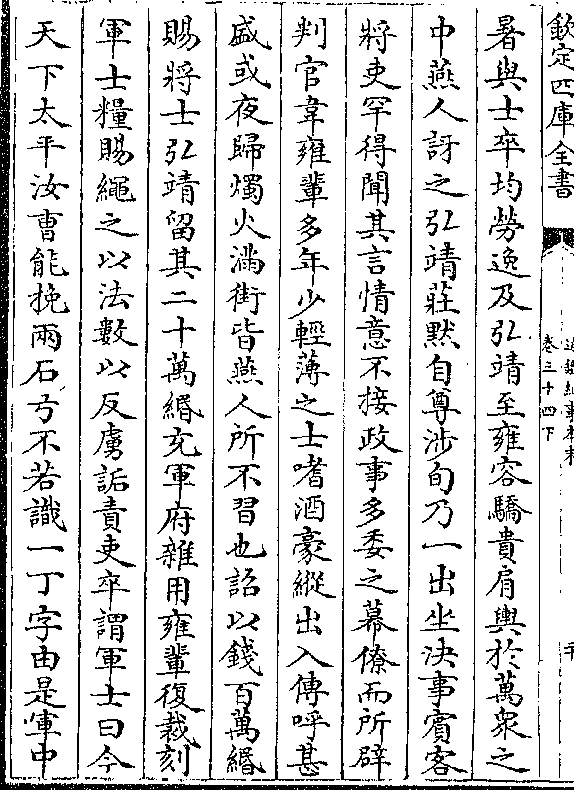 欽定四庫全書
卷三十四下
暑與士卒均勞逸及弘靖至雍容驕貴肩輿於萬衆之
中燕人訝之弘靖莊默自尊涉旬乃一出坐決事賓客
將吏罕得聞其言情意不接政事多委之幕僚而所辟
判官韋雍輩多年少輕薄之士嗜酒豪縱出入傳呼甚
盛或夜歸燭火滿街皆燕人所不習也詔以錢百萬緡
賜將士弘靖留其二十萬緡充軍府雜用雍輩復裁刻
軍士糧賜繩之以法數以反虜詬責吏卒謂軍士曰今
天下太平汝曹能挽兩石弓不若識一丁字由是軍中